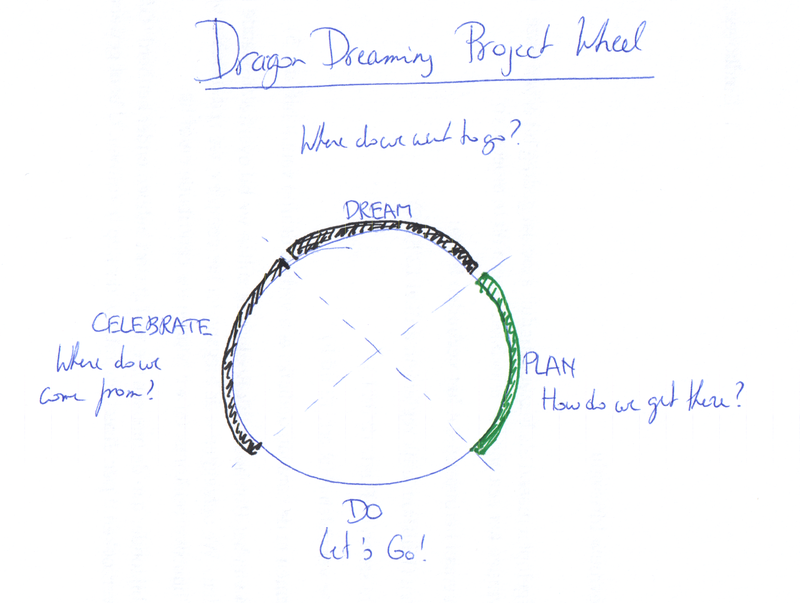 Dragon Dreaming Project Wheel
Where do we want to go?
DREAM
CELEBRATE
Where do we
come from?
PLAN
How do we get there?
DO
Let's Go!